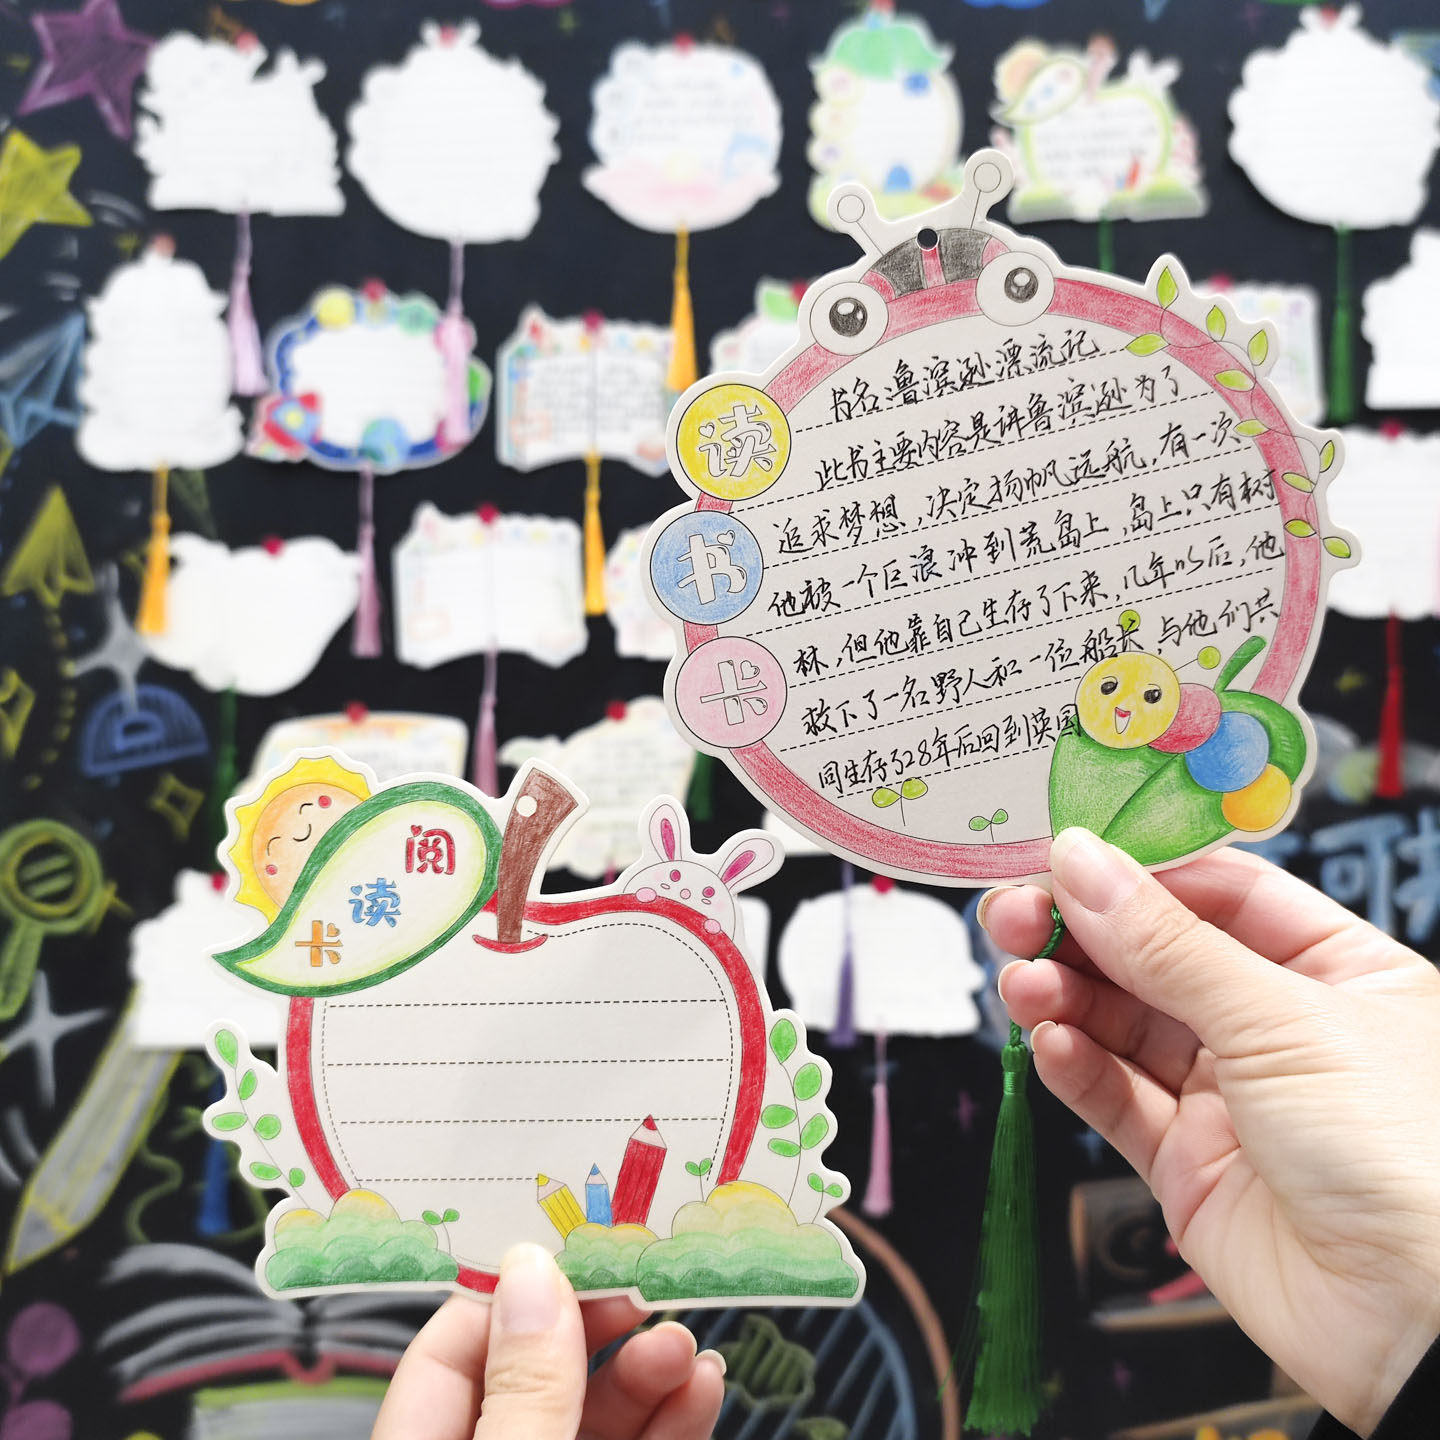 读
书
卡
书名鲁滨逊漂流记
此书主要内容是讲鲁滨逊为了
追求梦想,决定扬帆远航,有一次
他被一个巨浪冲到荒岛上,岛上只有树
林,但他靠自己生存了下来,几年以后,他
救下了一名野人和一位船长,与他们共
同生存了28年后回到英国
阅
读
卡